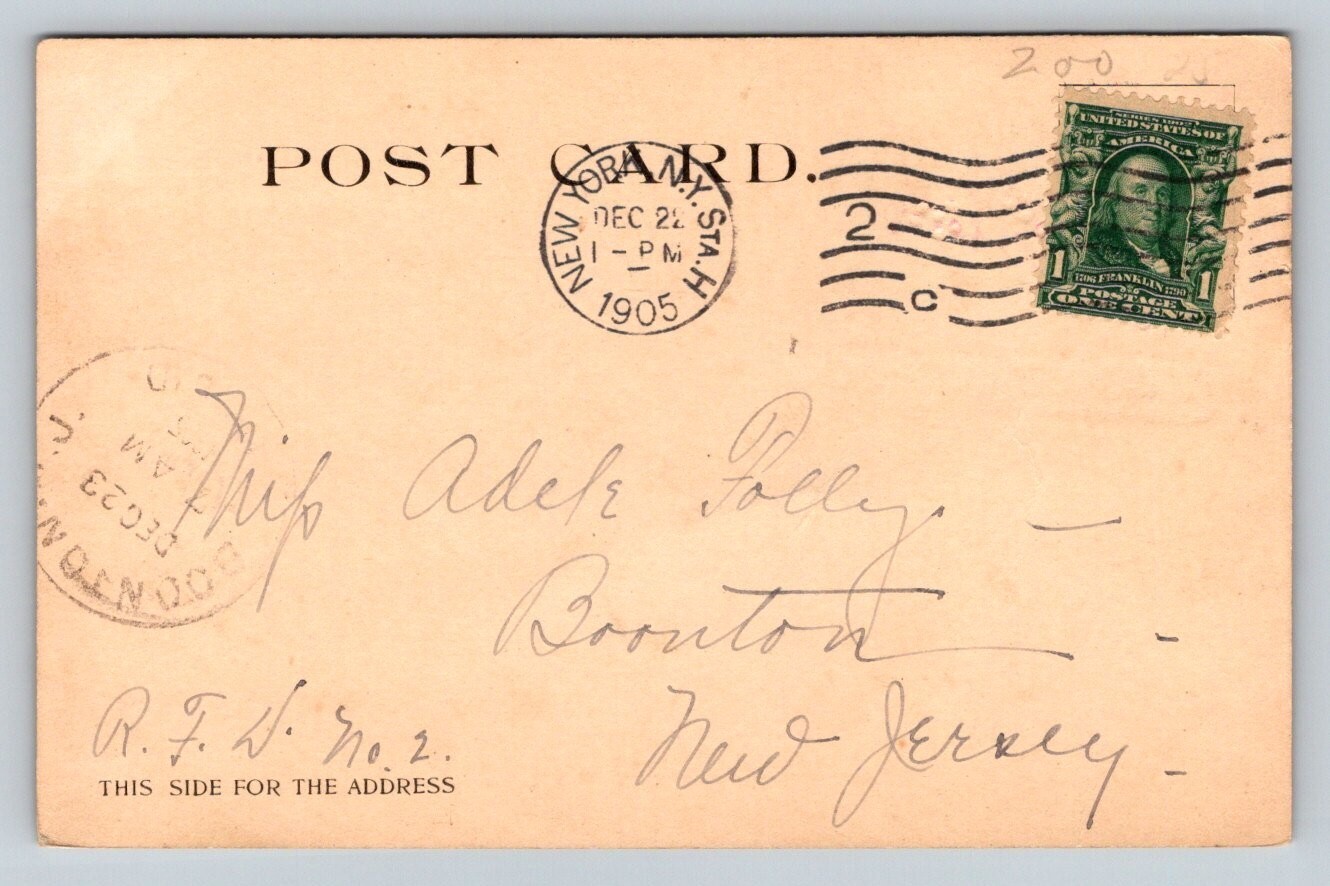 200
POST CARD.
NEW YORK, N.Y. STA. H
DEC 22
1 - PM
1905
2
C
SERIES 1902
UNITED STATES OF
AMERICA
1706 FRANKLIN 1790
1 POSTAGE 1
ONE CENT
BOONTON, N.J.
DEC 23
7 AM
Miss Adele Polley.
Boonton
New Jersey
R. F. D. No. 2.
THIS SIDE FOR THE ADDRESS